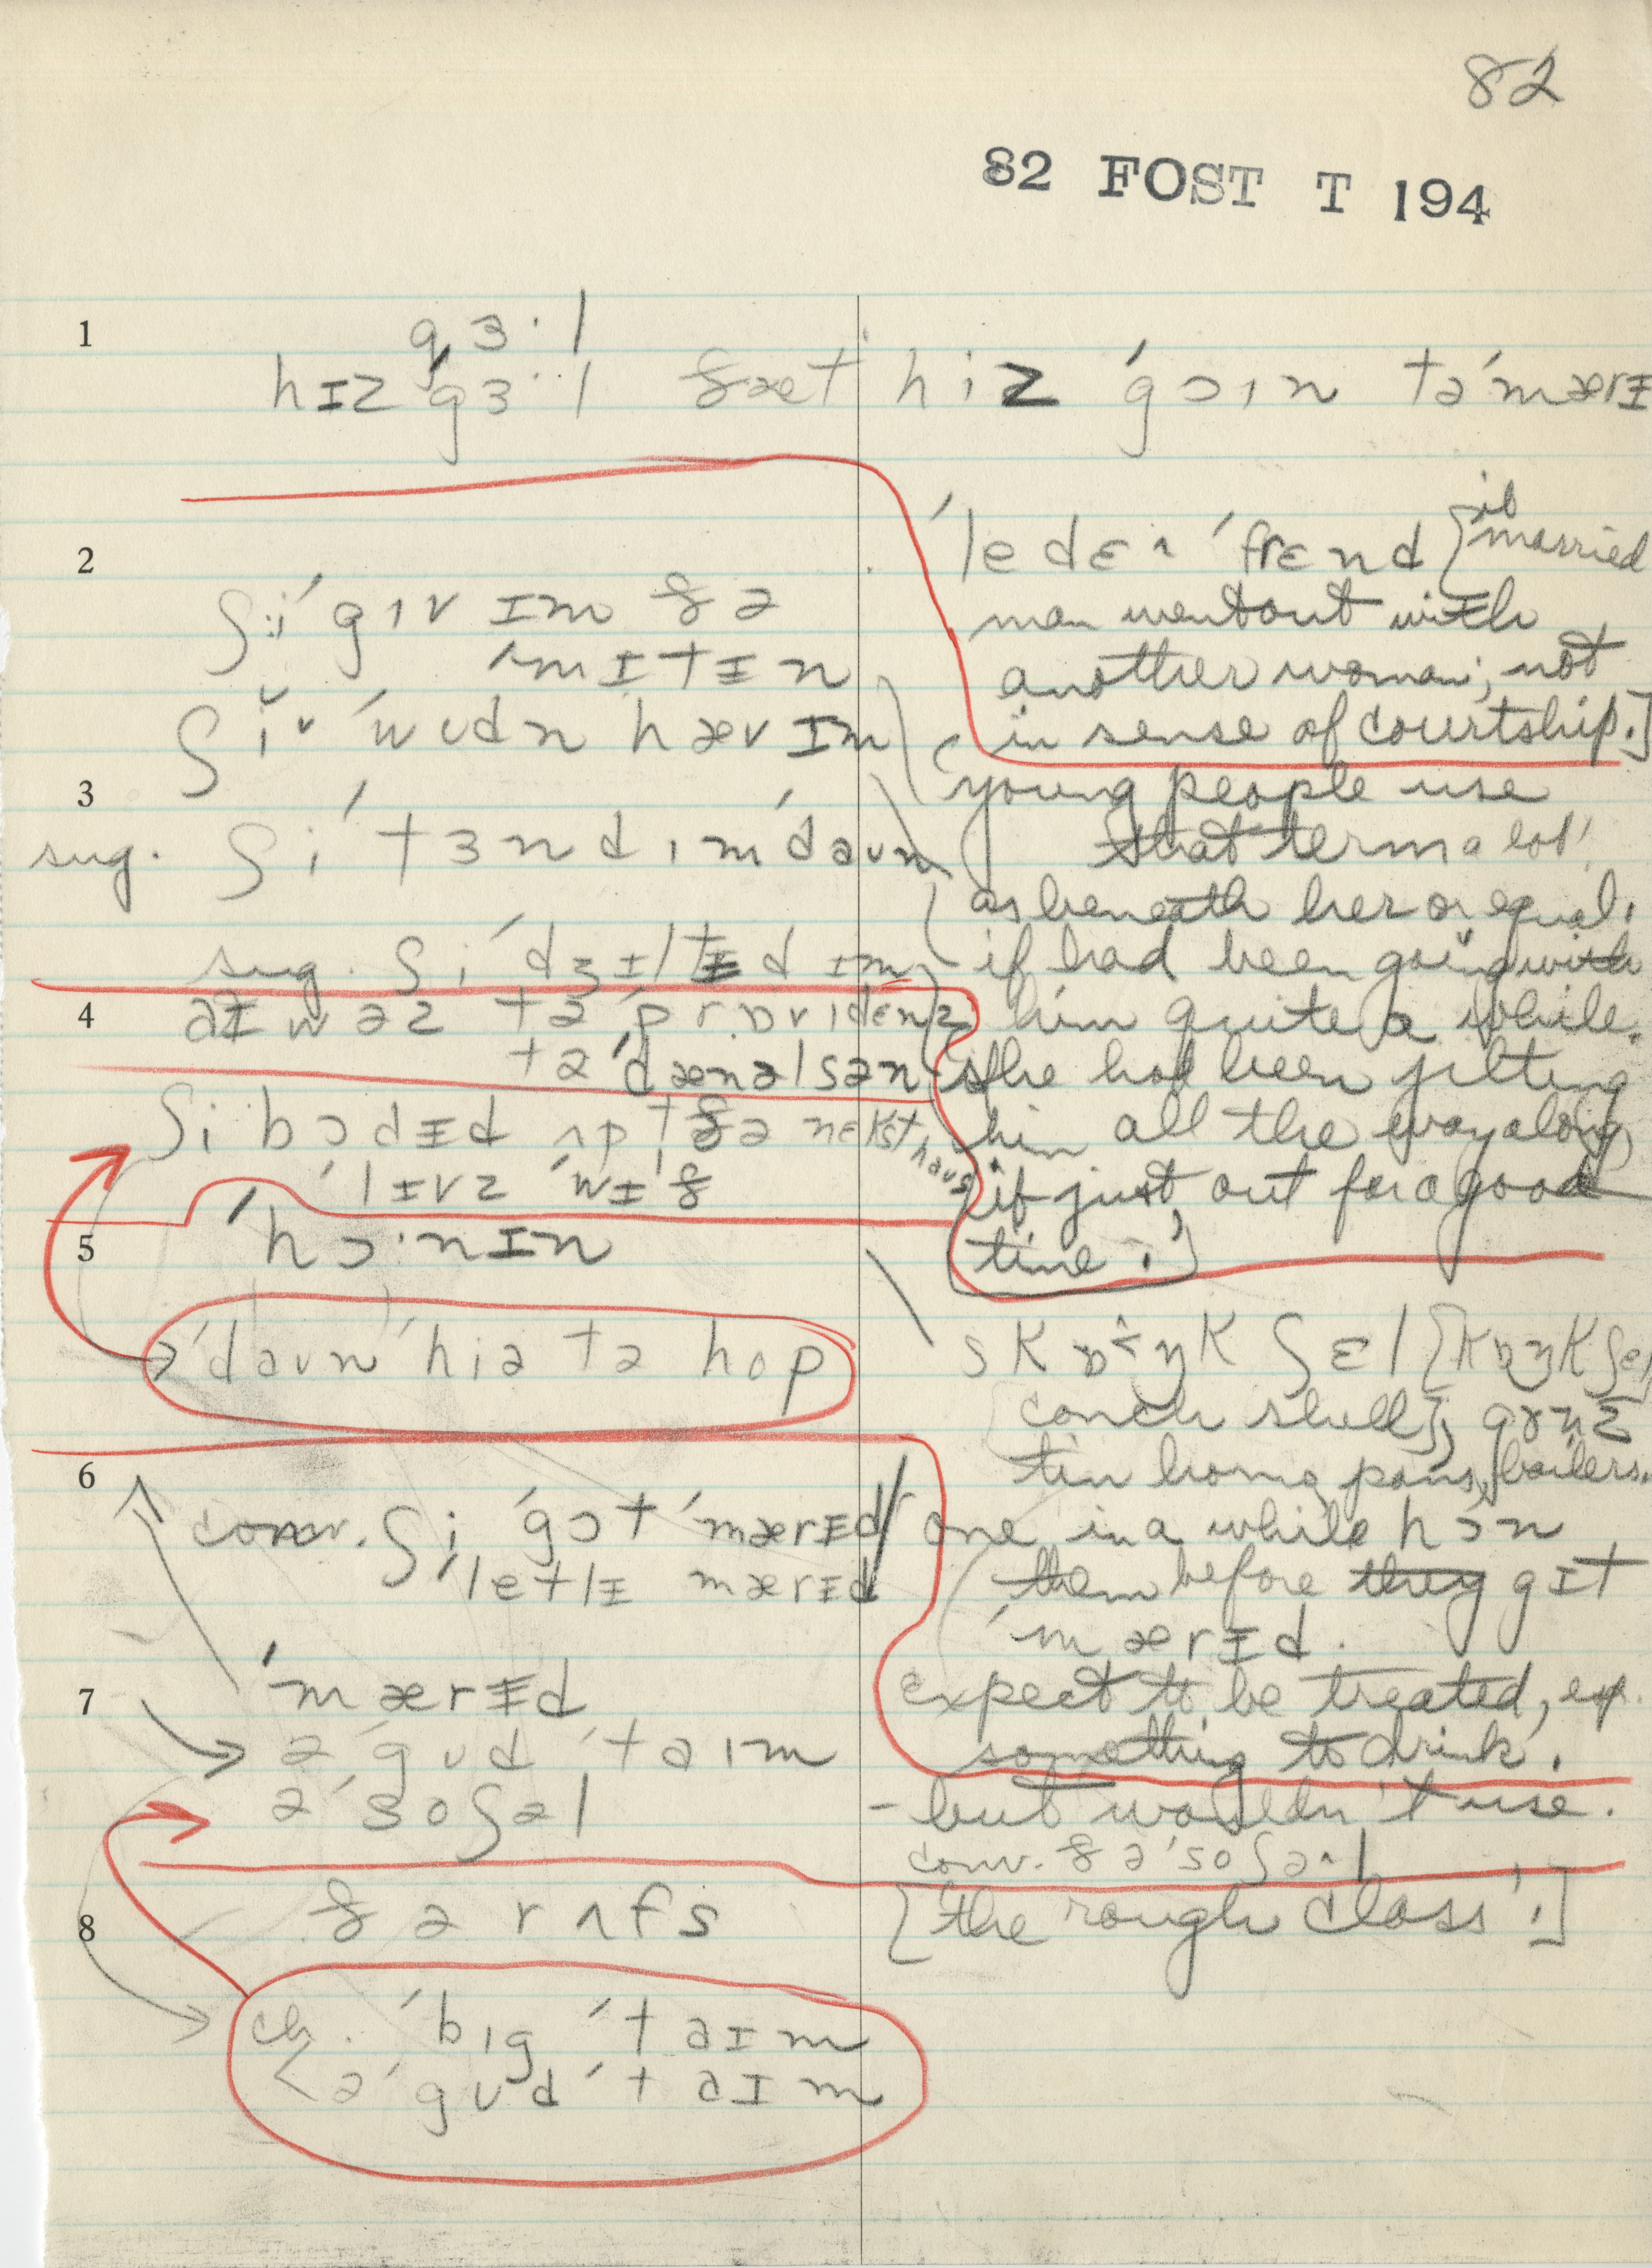 82
82 FOST T 194
1
gɜ·l
hɪz ˈgɜ·l ðæt hiz ˈgɔɪn təˈmærɪ
2
ˈledɛz ˈfrɛnd [if
married
man went out with
another woman; not
in sense of courtship.]
ʃiˈgɪv ɪm ðə
ˈmɪtɪn
ʃi ˈwʊdn hæv ɪm
3
sug. ʃi ˈtɜnd ɪm ˈdaun
sug. ʃi ˈdʒɪltɪd ɪm
young people use
that term a lot'
as beneath her or equal.
if had been going with
him quite a while.
she had been jilting
him all the way along
if just out for a good
time.']
4
aɪ wəz tə ˈprɒvɪdɛnz
tə ˈdænəlsən
ʃi bɔdɪd ʌp t ðə nɛkst haus
ˈlɪvz ˈwɪð
5
ˈhɔ·nɪn
ˈdaun ˈhiə tə hop
skɒŋk ʃɛl [kɒŋk ʃɛl
conch shell], gʌnz
tin horns, pans, boilers.
6
conv. ʃi ˈgɔt ˈmærɪd
ˈletlɪ mærɪd
one in a while hɔn
them before they gɪt
ˈmærɪd.
expect to be treated, esp.
something to drink.
7
ˈmærɪd
ə ˈgud ˈtaɪm
ə ˈsoʃəl
- but wouldn't use.
conv. ðə ˈsoʃəl
8
ðə rʌfs
[the rough class'.]
ch. ˈbɪg ˈtaɪm
< ə ˈgud ˈtaɪm